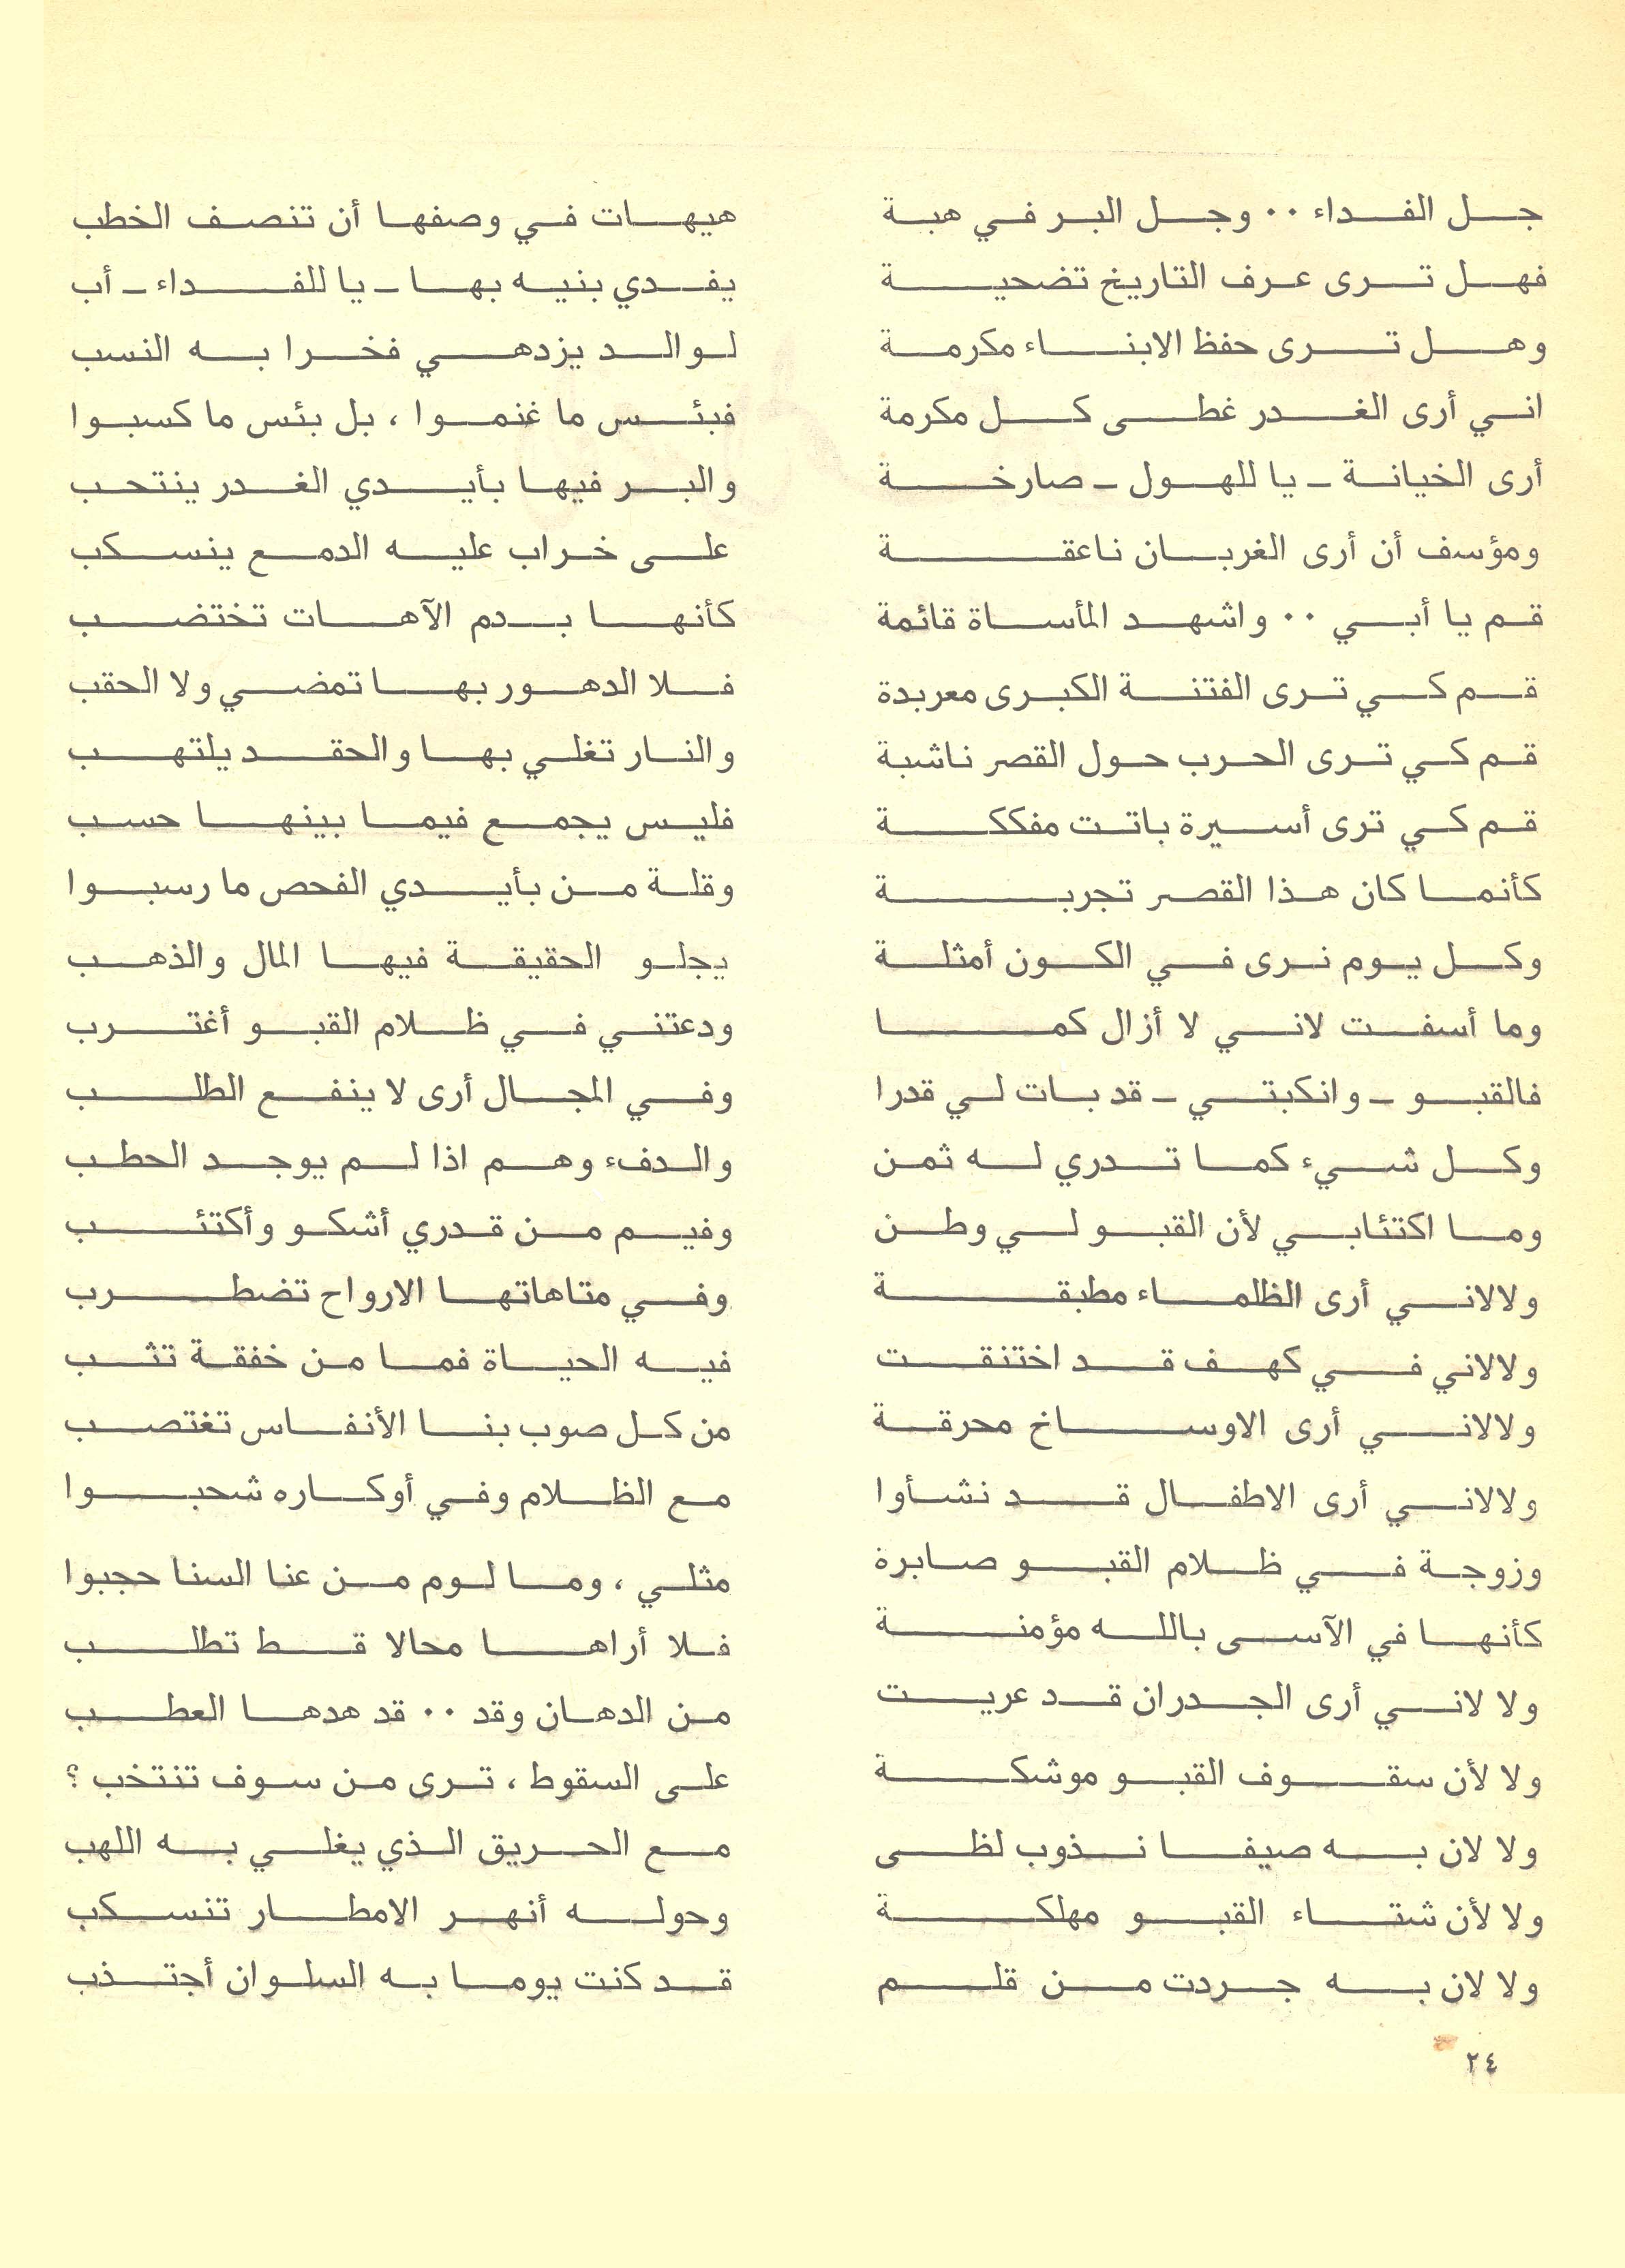 جل الفداء ٠٠ وجل البر في هبة هيهات في وصفها أن تنصف الخطب
فهل ترى عرف التاريخ تضحية يفدي بنيه بها ـ يا للفداء ـ أب
وهل ترى حفظ الابناء مكرمة لوالد يزدهي فخرا به النسب
اني أرى الغدر غطى كل مكرمة فبئس ما غنموا ، بل بئس ما كسبوا
أرى الخيانة ـ يا للهول ـ صارخة والبر فيها بأيدي الغدر ينتحب
ومؤسف أن أرى الغربان ناعقة على خراب عليه الدمع ينسكب
قم يا أبي ٠٠ واشهد المأساة قائمة كأنها بدم الآهات تختضب
قم كي ترى الفتنة الكبرى معربدة فلا الدهور بها تمضي ولا الحقب
قم كي ترى الحرب حول القصر ناشبة والنار تغلي بها والحقد يلتهب
قم كي ترى أسيرة باتت مفككة فليس يجمع فيما بينها حسب
كأنما كان هذا القصر تجربة وقلة من بأيدي الفحص ما رسبوا
وكل يوم نرى في الكون أمثلة يجلو الحقيقة فيها المال والذهب
وما أسفت لاني لا أزال كما ودعتني في ظلام القبو أغترب
فالقبو ـ وانكبتي ـ قد بات لي قدرا وفي المجال أرى لا ينفع الطلب
وكل شيء كما تدري له ثمن والدفء وهم اذا لم يوجد الحطب
وما اكتئابي لأن القبو لي وطن وفيم من قدري أشكو وأكتئب
ولالاني أرى الظلماء مطبقة وفي متاهاتها الارواح تضطرب
ولالاني في كهف قد اختنقت فيه الحياة فما من خفقة تثب
ولالاني أرى الاوساخ محرقة من كل صوب بنا الأنفاس تغتصب
ولالاني أرى الاطفال قد نشأوا مع الظلام وفي أوكاره شحبوا
وزوجة في ظلام القبو صابرة مثلي ، وما لوم من عنا السنا حجبوا
كأنها في الآسى بالله مؤمنة فلا أراها محالا قط تطلب
ولا لاني أرى الجدران قد عريت من الدهان وقد ٠٠ قد هدها العطب
ولا لأن سقوف القبو موشكة على السقوط ، ترى من سوف تنتخب ؟
ولا لان به صيفا نذوب لظى مع الحريق الذي يغلي به اللهب
ولا لأن شتاء القبو مهلكة وحوله أنهر الامطار تنسكب
ولا لان به جردت من قلم قد كنت يوما به السلوان أجتذب
٢٤